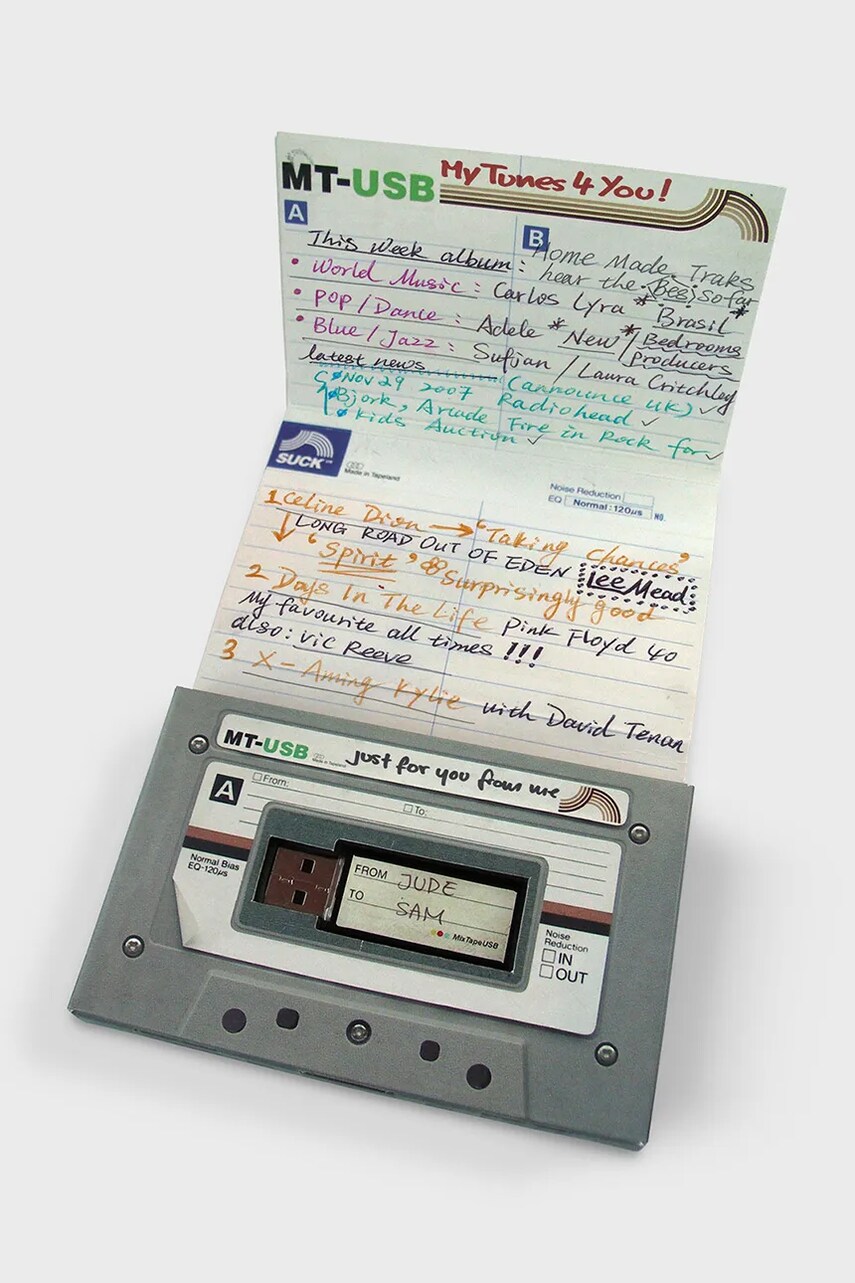 MT-USB My Tunes 4 You!
A
B
This Week album: Home Made Traks
hear the (Bees) so far
• World Music: Carlos Lyra * Brasil *
• POP/Dance: Adele * New * / Bedrooms
Producers
• Blue/Jazz: Sufjan / Laura Critchley
latest news
Nov 29 2007 (announce UK) ✓
Radiohead ✓
Bjork, Arcade Fire in Rock for
Kids Auction ✓
SUCK
Made in Tapeland
Noise Reduction
EQ Normal:120µs NO.
1 Celine Dion → 'Taking Chances'
LONG ROAD OUT OF EDEN Lee Mead
'Spirit' & Surprisingly good
2 Days In The Life Pink Floyd 40
My favourite all times !!!
also: Vic Reeve
3 X-Aming Kylie with David Tenan
MT-USB Made in Tapeland just for you from me
A
From:
To:
Normal Bias
EQ-120µs
FROM JUDE
TO SAM
MixTapeUSB
Noise
Reduction
IN
OUT